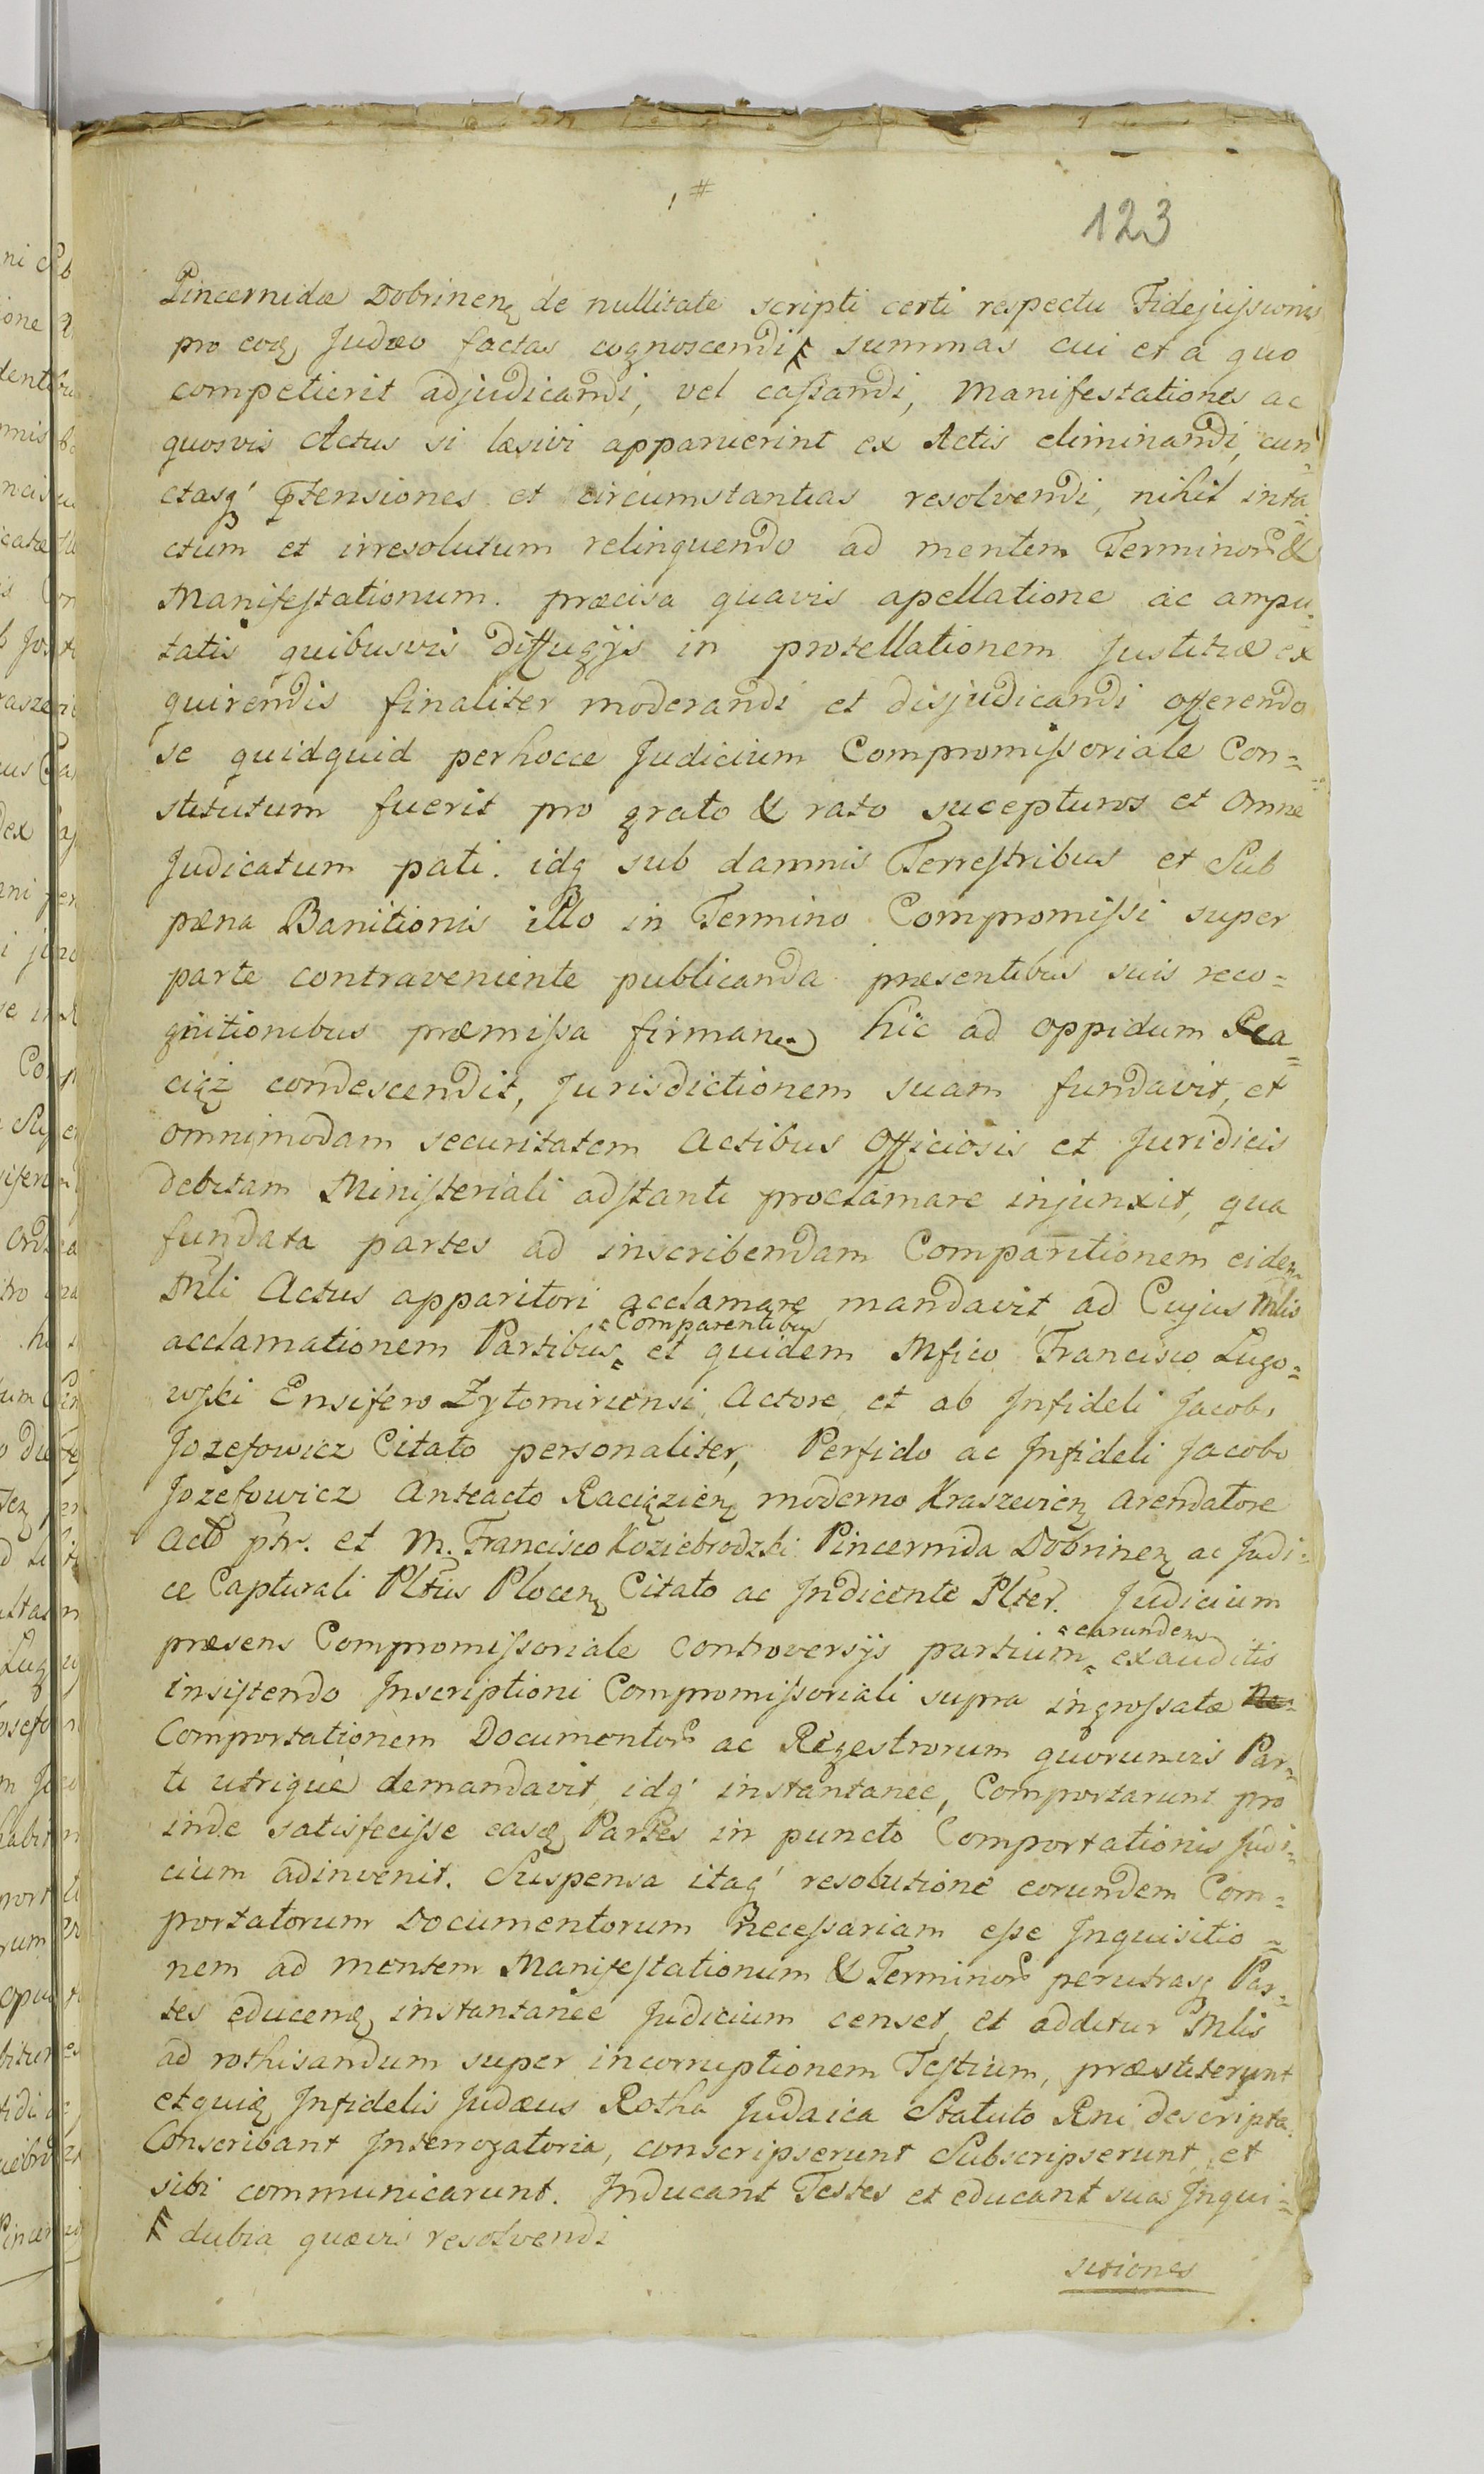 1#
123
Pincernidæ Dobrinen de nullitate scripti certi respectu Fidejuſsionis
pro eod Judæo factas cognoscendi summas cui et a quo
competierit adjudicandi, vel caſsandi, Manifestationes ac
quosvis Actus si læsivi apparuerint ex Actis eliminandi, cun=
ctasq' ptensiones et circumstantias resolvendi, nihil inta=
ctum et irresolutum relinquendo ad mentem Terminor &
Manifeſtationum. præcisa quavis apellatione ac ampu=
tatis quibusvis diffugijs in protellationem Justitiæ ex
quirendis finaliter moderandi et disjudicandi offerendo
se quidquid perhocce Judicium Compromiſsoriale Con=
stitutum fuerit pro grato & rato sucepturos et Omne
Judicatum pati. idq sub damnis Terreſtribus et Sub
pæna Banitionis illo in Termino Compromiſsi super
parte contraveniente publicanda præsentibus suis reco=
gnitionibus præmiſsa firman hic ad oppidum Ra=
ciąż condescendit, Jurisdictionem suam fundavit, et
omnimodam securitatem Actibus Officiosis et Juridicis
debitam Miniſteriali adſtanti proclamare injunxit, qua
fundata partes ad inscribendam Comparitionem eidem
Mli Actus apparitori acclamare mandavit, ad Cujus Mlis
acclamationem Partibus = Comparentibus et quidem Mfico Francisco Lugo=
wſki Ensifero Zytomiriensi Actore, et ab Infideli Jacobo
Jozefowicz Citato personaliter, Perfido ac Infideli Jacobo
Jozefowicz Anteacto Raciązien moderno Kraszevien Arendatore
Act ptr. et M. Francisco Koziebrodzki Pincernida Dobrinen ac Judi=
ce Capturali Pltus Plocen Citato ac Indicente Plter. Judicium
præsens Compromiſsoriale Controversijs partium = earundem exauditis
insiſtendo Inscriptioni Compromiſsoriali supra ingroſsatæ
Comportationem Documentor ac Regestrorum quorumvis Par=
ti utrique demandavit, idq' instantanee, Comportarunt pro
inde satisfeciſse easd Partes in puncto Comportationis Judi=
cium adinvenit. Suspensa itaq' resolutione eorundem Com=
portatorum Documentorum neceſsariam eſse Inquisitio=
nem ad mentem Manifeſtationum & Terminor perutrasq Par=
tes educend instantanee Judicium censet, et additur Mlis
ad rothisandum super incorruptionem Teſtium, præstiterunt
etquid Infidelis Judæus Rotha Judaica Statuto Rni descripta.
Conscribant Interrogatoria, conscripserunt Subscripserunt, et
sibi communicarunt. Inducant Testes et educant suas Inqui=
dubia quævis resolvendi
sitiones